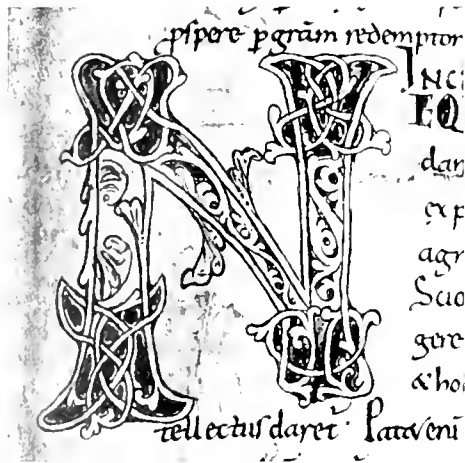 pspere p grām redemptor
INCI
N EQ
dan
exp
agr
Scio
gere
& hoi
tellectus daret · Patav eni